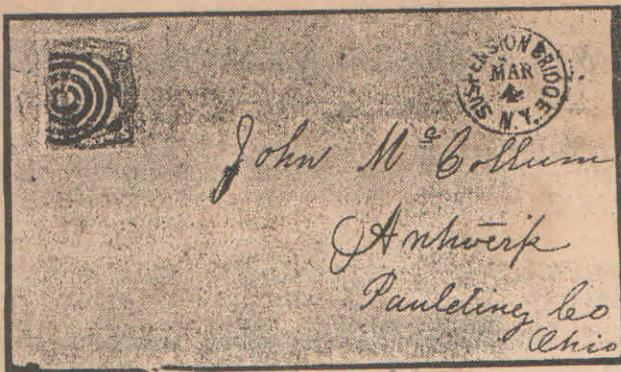 SUSPENSION BRIDGE, N.Y.
MAR
4
John Mc Collum
Antwerp
Paulding Co
Ohio